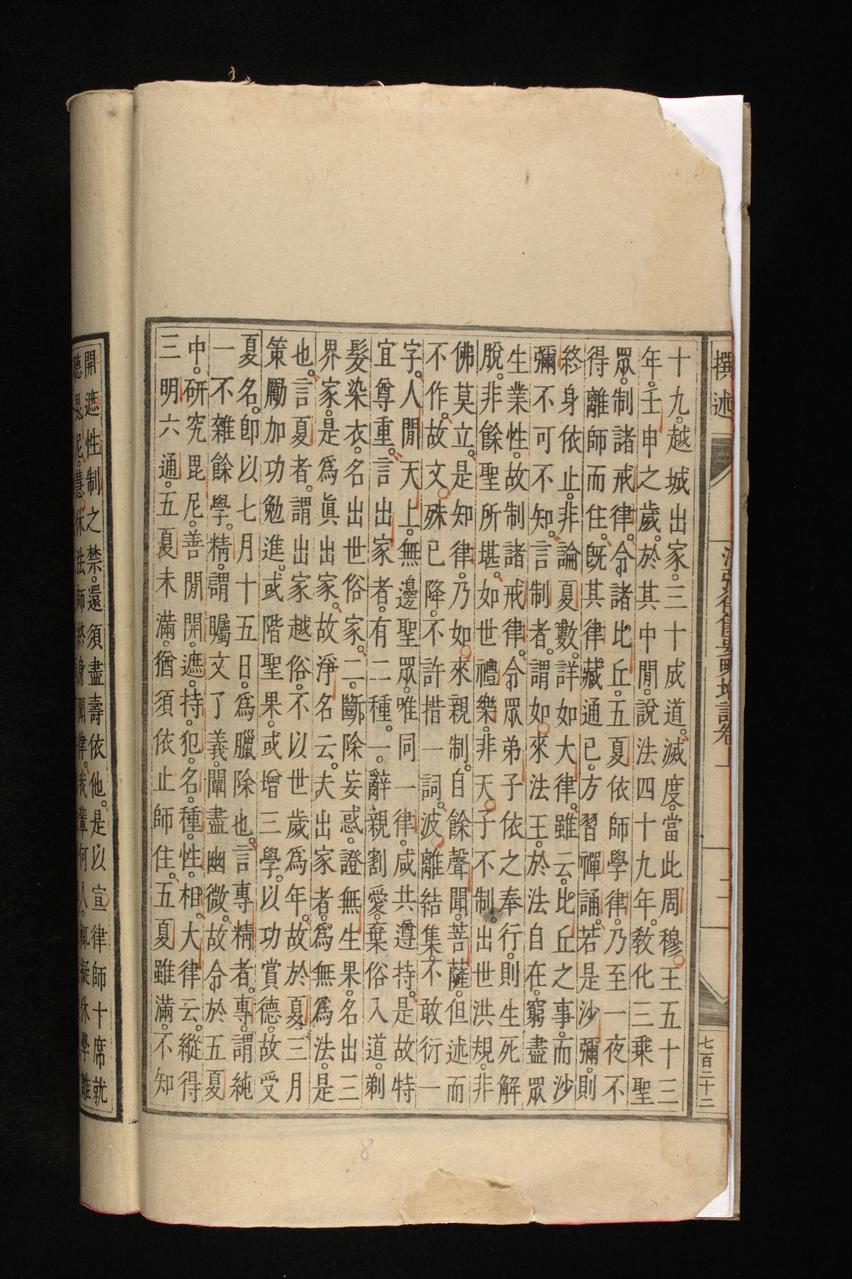 撰述
沙彌律儀要略增註卷上
七百二十二
十九。越城出家。三十成道。滅度。當此周穆王五十三
年。壬申之歲。於其中閒。說法四十九年。敎化三乘聖
眾。制諸戒律。令諸比丘。五夏依師學律。乃至一夜不
得離師而住。旣其律藏通已。方習禪誦。若是沙彌。則
終身依止。非論夏數。詳如大律。雖云。比丘之事。而沙
彌不可不知。言制者。謂如來法王。於法自在。窮盡眾
生業性。故制諸戒律。令眾弟子依之奉行。則生死解
脫。非餘聖所堪。如世禮樂。非天子不制。出世洪規。非
佛莫立。是知律。乃如來親制。自餘聲聞。菩薩。但述而
不作。故文殊已降。不許措一詞。波離結集。不敢衍一
字。人閒天上。無邊聖眾。唯同一律。咸共遵持。是故特
宜尊重。言出家者。有二種。一。辭親割愛。棄俗入道。剃
髮染衣。名出世俗家。二。斷除妄惑。證無生果。名出三
界家。是爲眞出家。故淨名云。夫出家者。爲無爲法。是
也。言夏者。謂出家越俗。不以世歲爲年。故於夏三月
策勵加功勉進。或階聖果。或增三學。以功賞德。故受
夏名。卽以七月十五日。爲臘除也。言專精者。專。謂純
一不雜餘學。精。謂矚文了義。闡盡幽微。故令於五夏
中。硏究毘尼。善閒開。遮。持。犯。名。種。性。相。大律云。縱得
三明六通。五夏未滿。猶須依止師住。五夏雖滿。不知
開遮性制之禁。還須盡壽依他。是以宣律師十席就